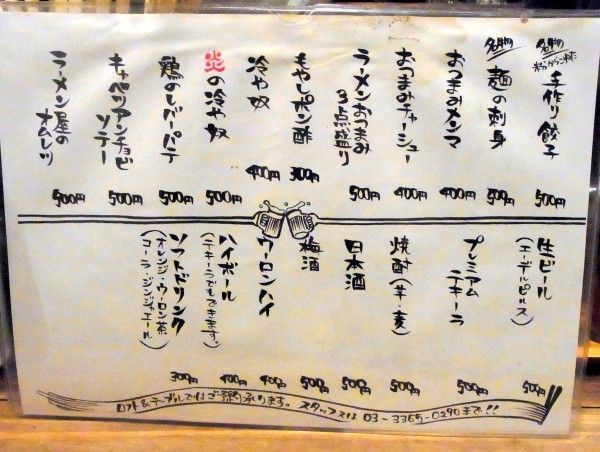 名物
粉からこねた
手作り餃子
500円
名物
麺の刺身
500円
おつまみメンマ
400円
おつまみチャーシュー
400円
ラーメンおつまみ
3点盛り
500円
もやしポン酢
300円
冷や奴
400円
炎の冷や奴
500円
鶏のレバーパテ
500円
キャベツアンチョビ
ソテー
500円
ラーメン屋の
オムレツ
500円
生ビール
(エーデルピルス)
500円
プレミアム
テキーラ
500円
焼酎(芋・麦)
500円
日本酒
500円
梅酒
500円
ウーロンハイ
400円
ハイボール
(テキーラでもできますっ)
400円
ソフトドリンク
(オレンジ・ウーロン茶
コーラ・ジンジャエール)
300円
ロフト&テーブルではご予約承ります。スタッフ又は 03-3365-0290まで!!